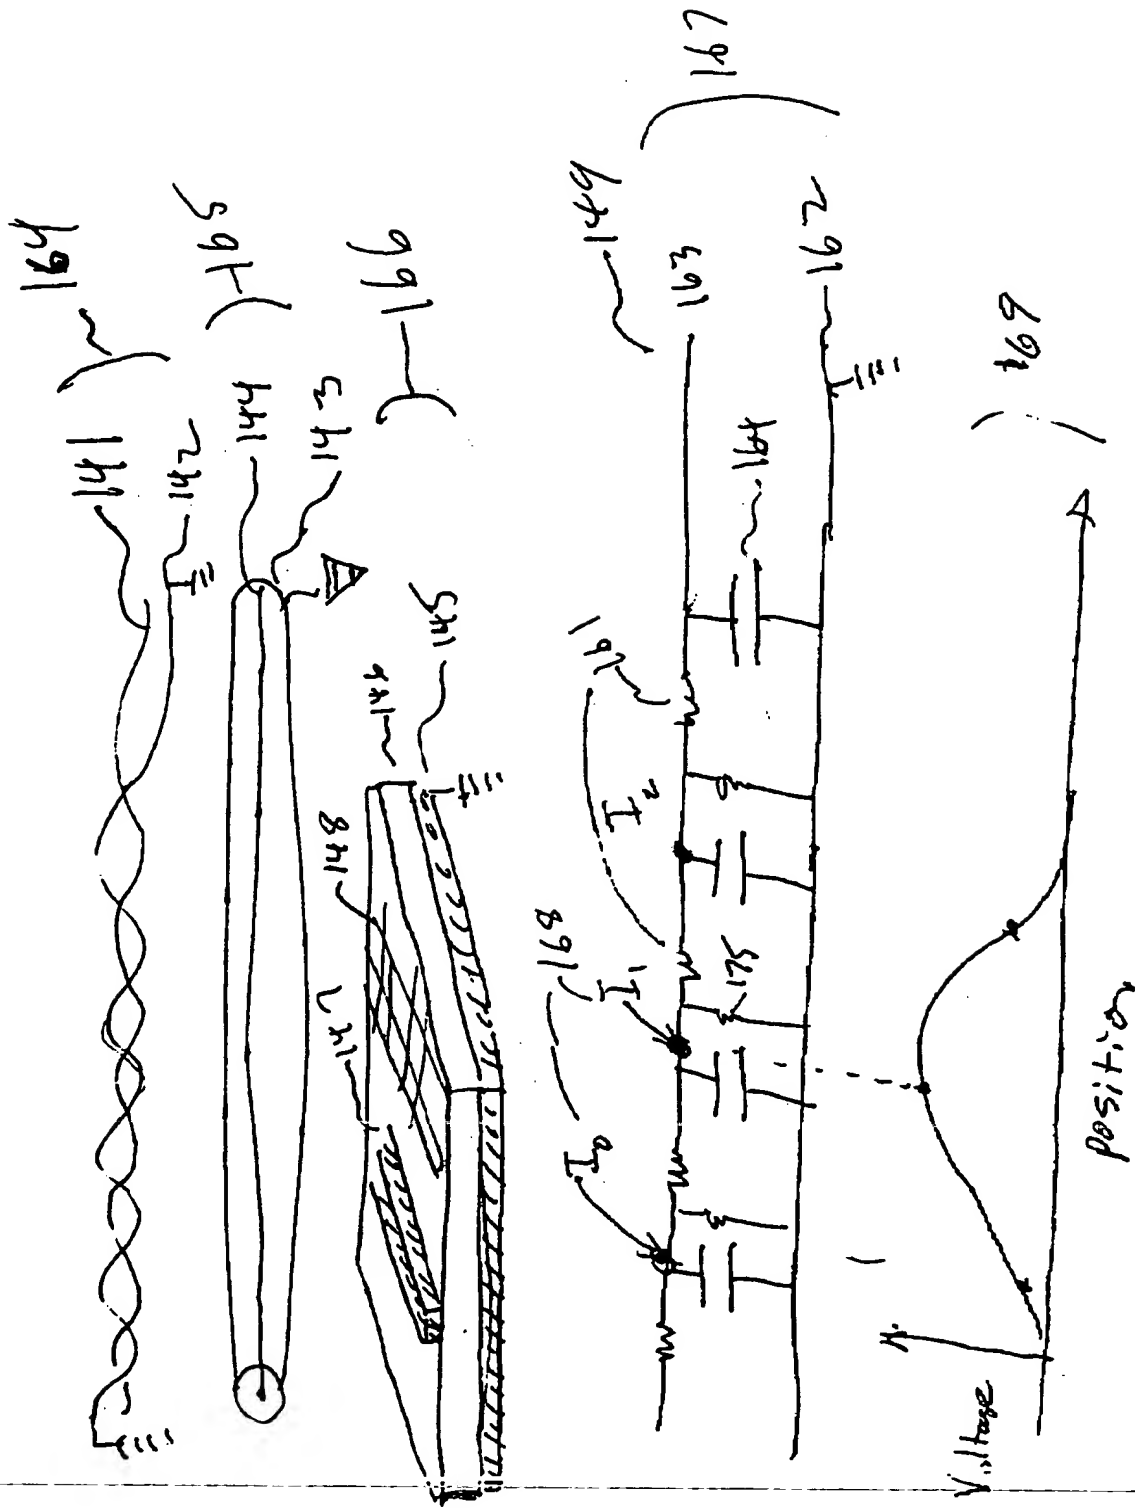 164
141
142
165
144
143
166
146
145
148
147
149
167
163
162
164
161
I2
168
I1
175
I0
169
Voltage
position